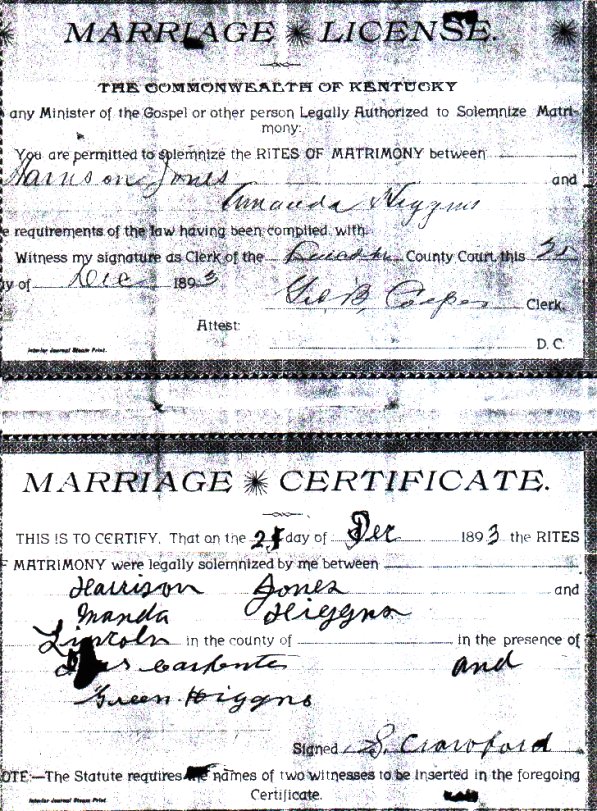 MARRIAGE LICENSE.
THE COMMONWEALTH OF KENTUCKY
any Minister of the Gospel or other person Legally Authorized to Solemnize Matri-
mony:
You are permitted to solemnize the RITES OF MATRIMONY between
Harrison Jones and
Amanda Higgins
e requirements of the law having been complied with.
Witness my signature as Clerk of the Lincoln County Court, this
y of Dec 1893
Geo. B. Cooper Clerk.
Attest:
D. C.
Interior Journal Steam Print.
MARRIAGE CERTIFICATE.
THIS IS TO CERTIFY, That on the day of Dec 1893 the RITES
F MATRIMONY were legally solemnized by me between
Harrison Jones and
Manda Higgns
Lincoln in the county of in the presence of
Carpenter and
Green Higgns
Signed S. Crawford
OTE:—The Statute requires the names of two witnesses to be inserted in the foregoing
Certificate.
Interior Journal Steam Print